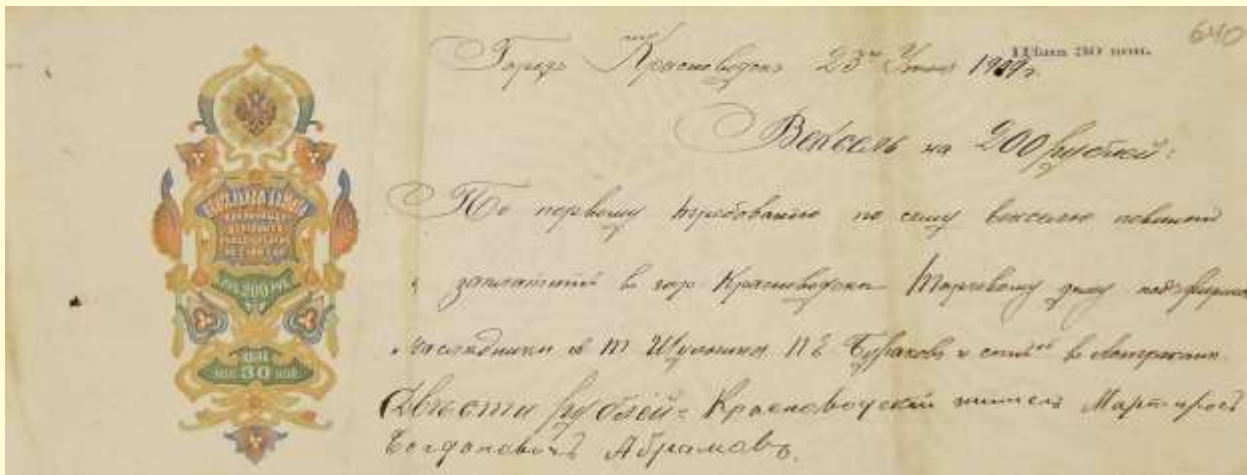 640
Цѣна 30 коп.
Городъ Красноводскъ 23го 1909г.
Вексель на 200 рублей:
По первому требованію по сему векселю повиненъ
заплатить в гор Красноводскъ Торговому дому под фирмою
Наслѣдники Т Шульгина П Е Бураковъ и в Астрахани
Двѣсти рублей = Красноводскій житель Мартиросъ
Богдановичъ Абрамовъ.
ВЕКСЕЛЬНАЯ БУМАГА
200 РУБ.
ЦѢНА
30 КОП.